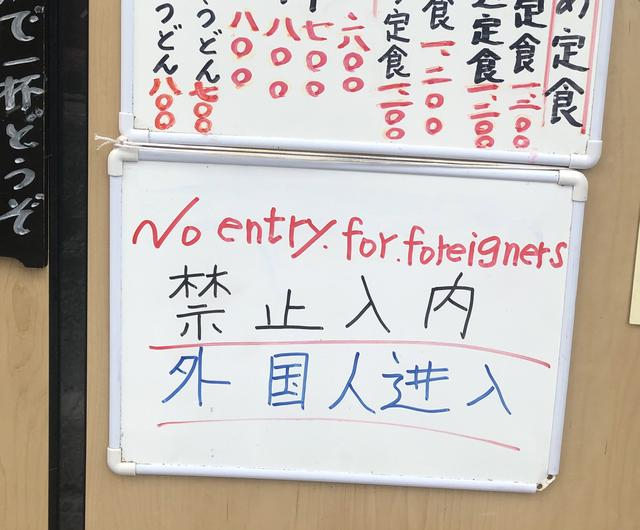 め定食
定食 一、三〇〇
定食 一、二〇〇
食 一、二〇〇
定食 一、二〇〇
六〇〇
七〇〇
八〇〇
八〇〇
うどん 七〇〇
うどん 八〇〇
で一杯どうぞ
No entry.for.foreigners
禁止入内
外国人进入